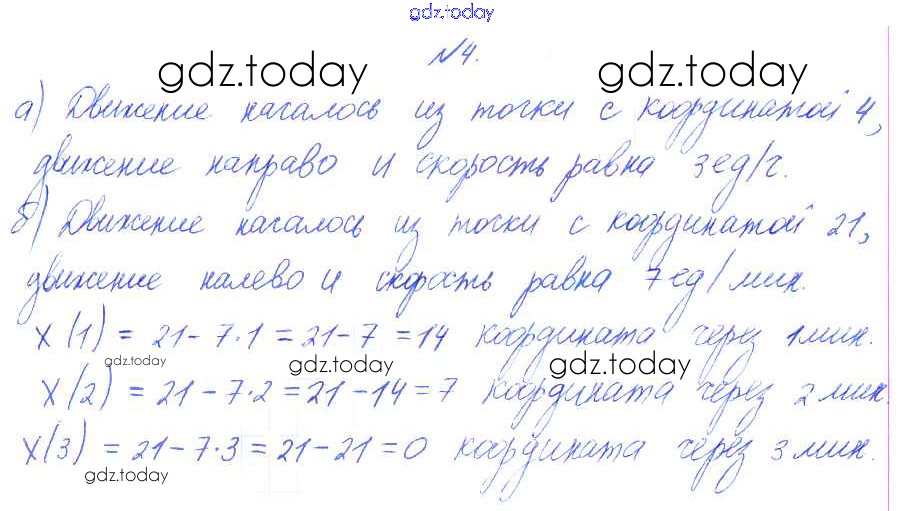 gdz.today
№4.
gdz.today gdz.today
а) Движение началось из точки с координатой 4,
движение направо и скорость равна 3 ед/ч.
б) Движение началось из точки с координатой 21,
движение налево и скорость равна 7 ед/мин.
x(1) = 21 - 7·1 = 21 - 7 = 14 координата через 1 мин.
gdz.today gdz.today gdz.today
x(2) = 21 - 7·2 = 21 - 14 = 7 координата через 2 мин.
x(3) = 21 - 7·3 = 21 - 21 = 0 координата через 3 мин.
gdz.today